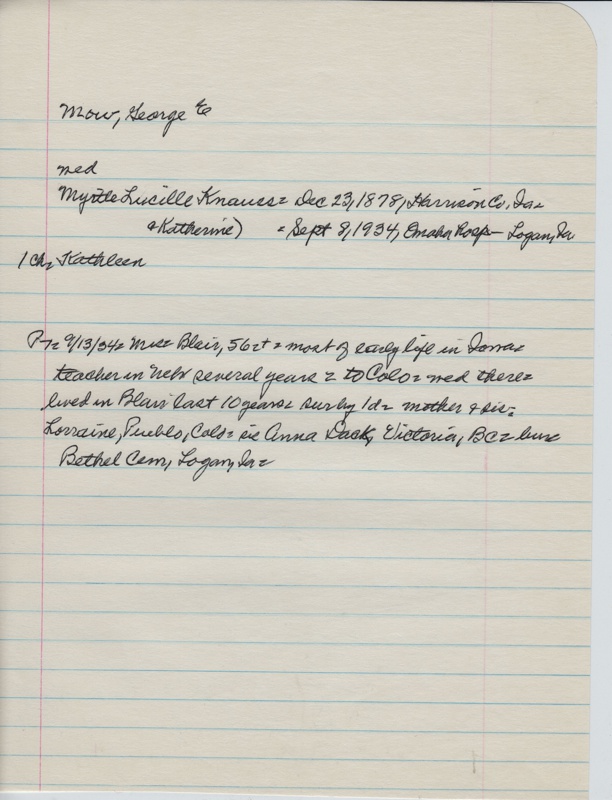 Mow, George E
med
Myrtle Lucille Knauss = Dec 23, 1878, Harrison Co, Ia =
& Katherine) = Sept 8, 1934, Omaha Hosp - Logan, Ia
1 ch, Kathleen
P-7 = 9/13/34 = Mrs = Blair, 56 = most of early life in Iowa =
teacher in Nebr several years = to Colo = med there =
lived in Blair last 10 years = sur by 1d = mother & sis =
Lorraine, Pueblo, Colo = sis Anna Dack, Victoria, BC = bur =
Bethel Cem, Logan, Ia =